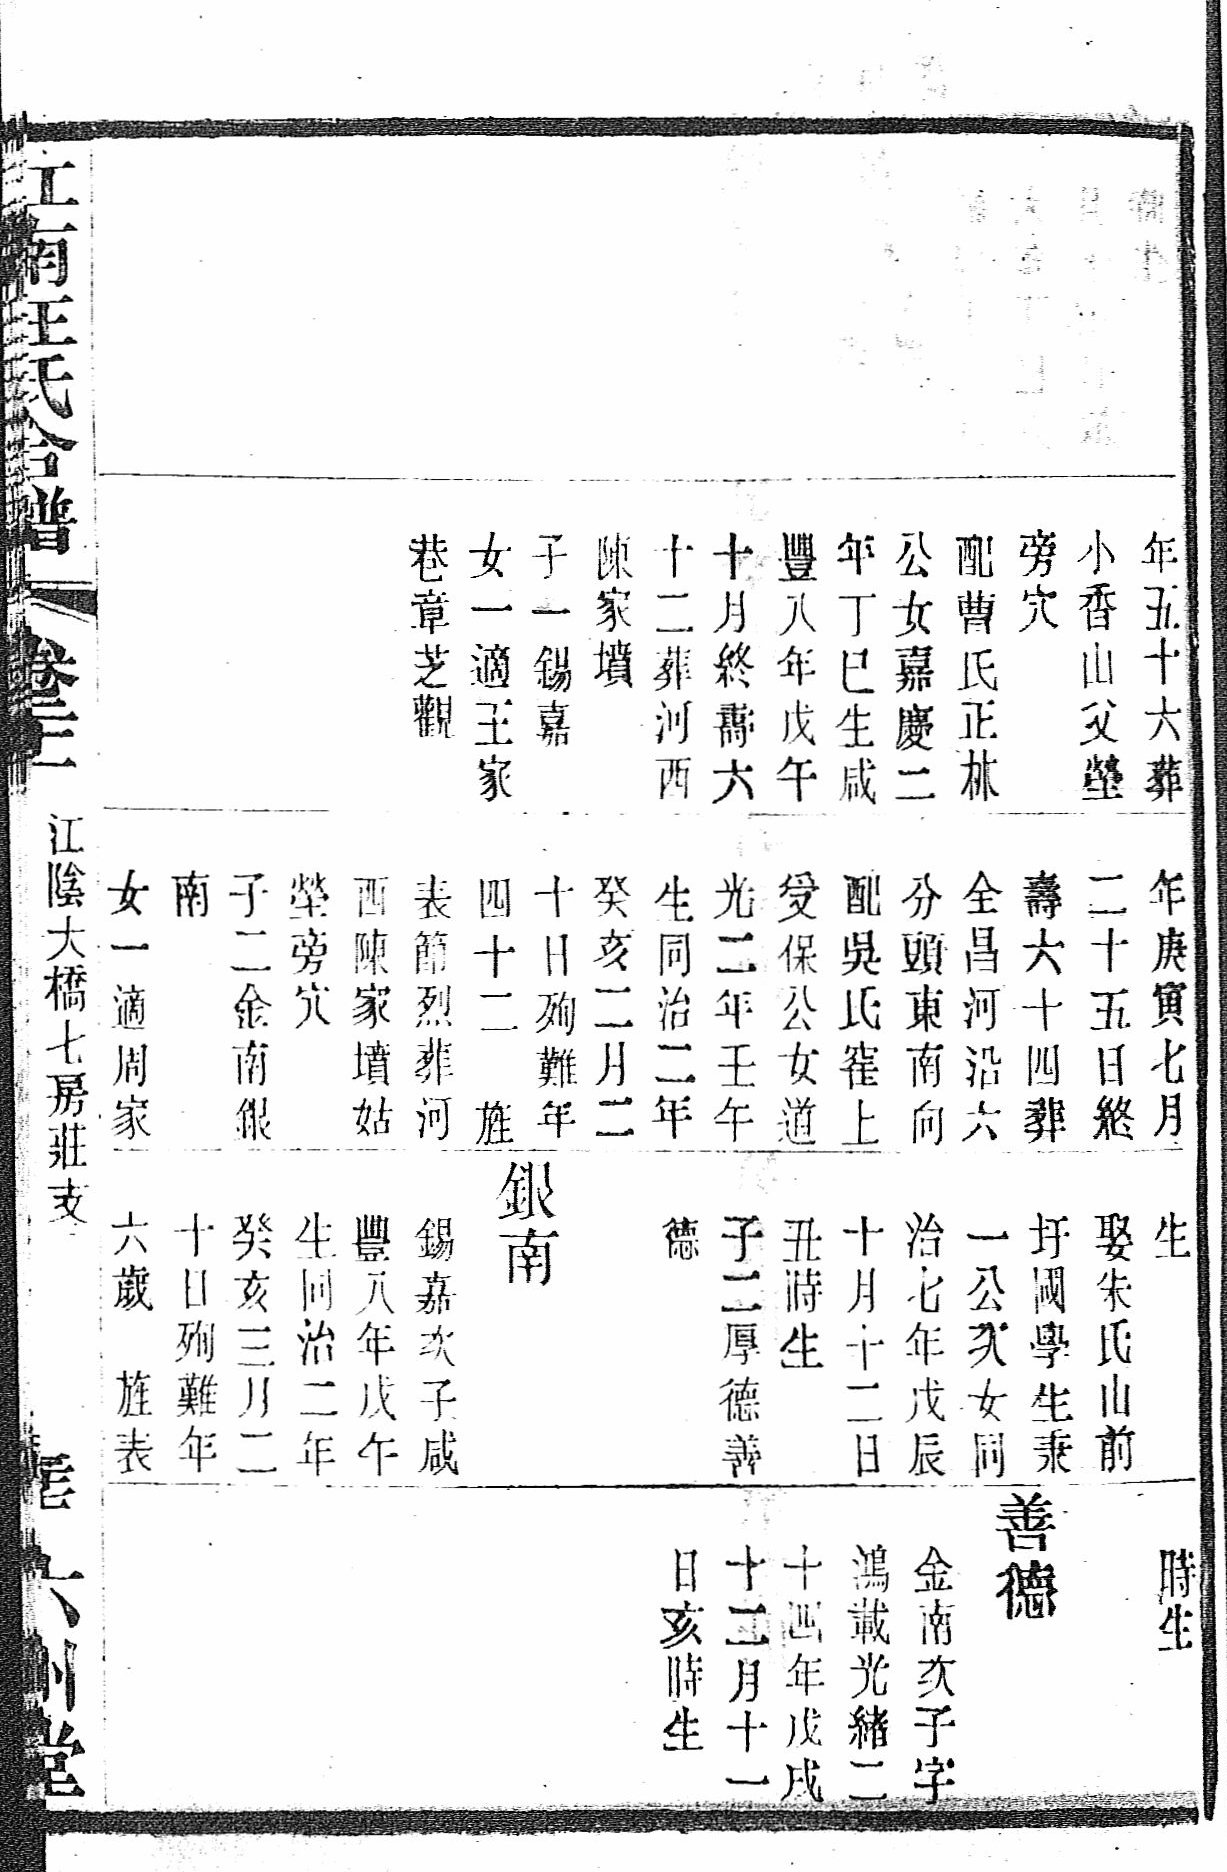 年五十六葬
小香山父塋
旁穴
配曹氏正林
公女嘉慶二
年丁巳生咸
豐八年戊午
十月終壽六
十二葬河西
陳家墳
子一錫嘉
女一適王家
巷章芝觀
年庚寅七月
二十五日終
壽六十四葬
全昌河沿六
分頭東南向
配吳氏窑上
受保公女道
光二年壬午
生同治二年
癸亥二月二
十日殉難年
四十二　旌
表節烈葬河
西陳家墳姑
塋旁穴
子二金南銀
南
女一適周家
生
娶朱氏山前
圩國學生秉
一公次女同
治七年戊辰
十月十二日
丑時生
子二厚德善
德
銀南
錫嘉次子咸
豐八年戊午
生同治二年
癸亥三月二
十日殉難年
六歲　旌表
時生
善德
金南次子字
鴻載光緒二
十四年戊戌
十二月十一
日亥時生
江南汪氏合譜
卷三
江陰大橋七房莊支
六州堂